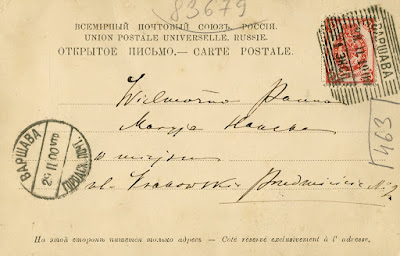 83679
ВСЕМІРНЫЙ ПОЧТОВЫЙ СОЮЗЪ. РОССІЯ.
UNION POSTALE UNIVERSELLE. RUSSIE.
ОТКРЫТОЕ ПИСЬМО.— CARTE POSTALE.
ВАРШАВА
Wielmożna Panna
Maryja
w miejscu
ul. Krakowskie Przedmieście N.
463
ВАРШАВА
На этой сторонѣ пишется только адресъ — Coté réservé exclusivement à l'adresse.